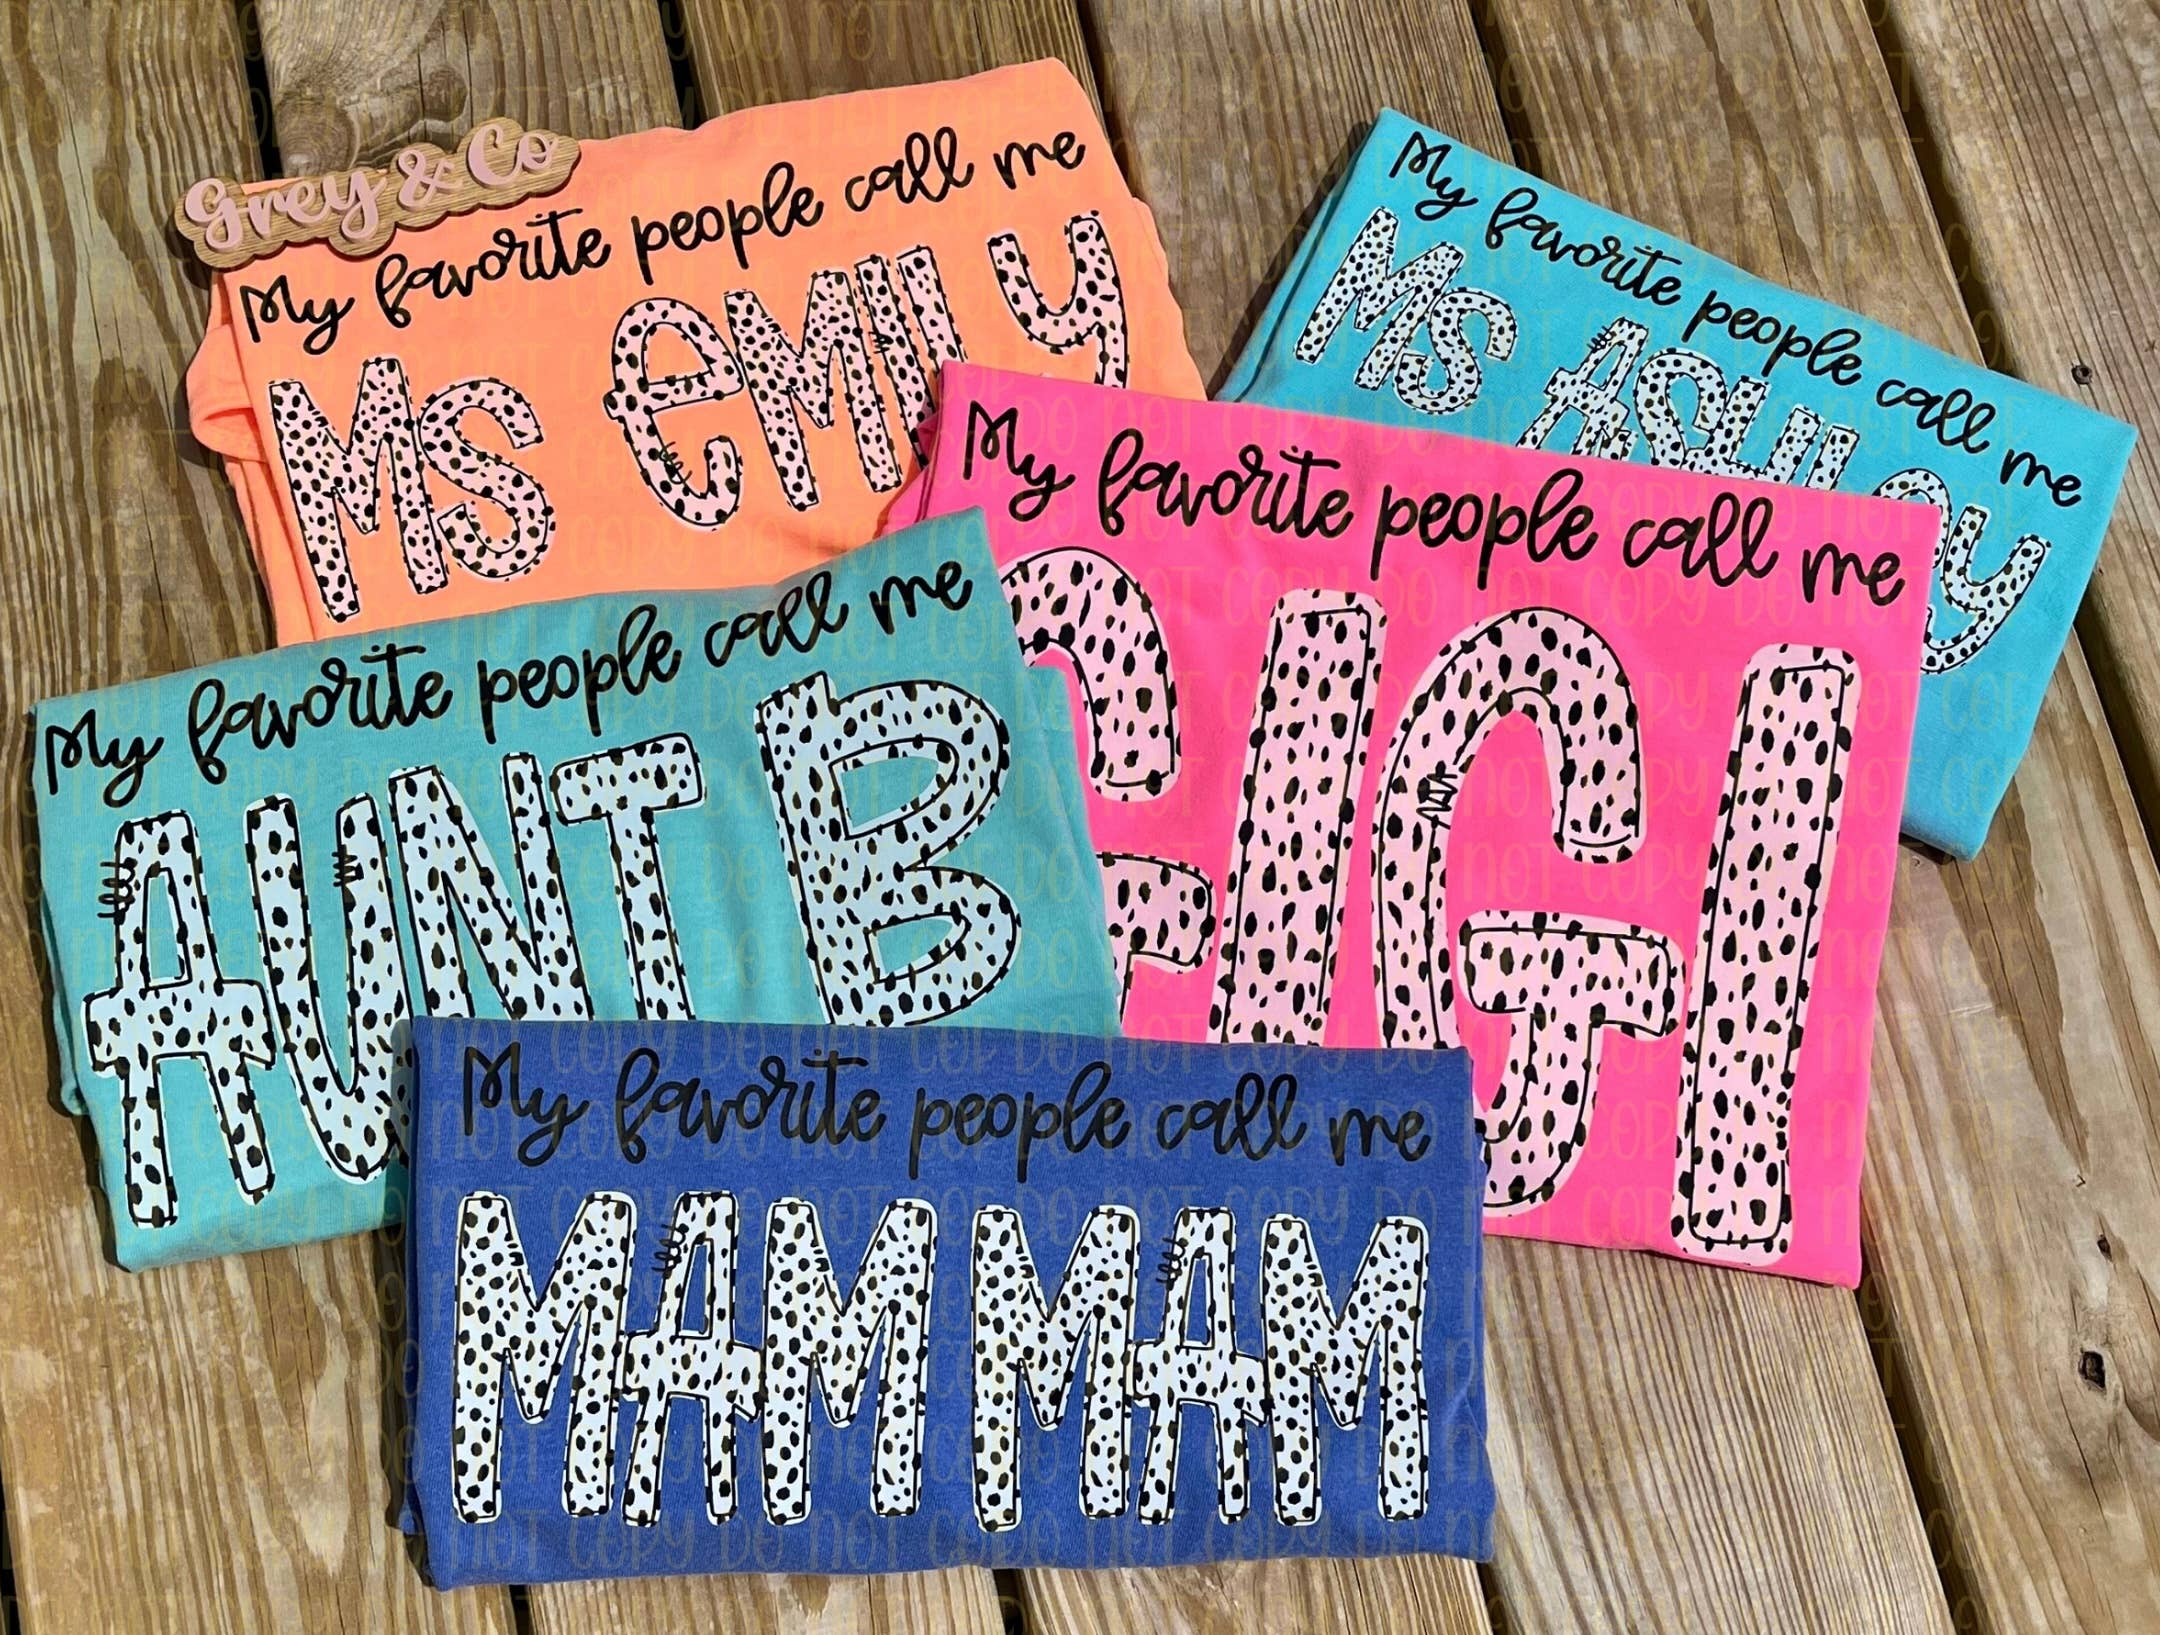 Grey & Co
My favorite people call me
MS eMILY
My favorite people call me
MS ASHLEY
My favorite people call me
GIGI
My favorite people call me
AUNT B
My favorite people call me
MAM MAM
DO NOT COPY